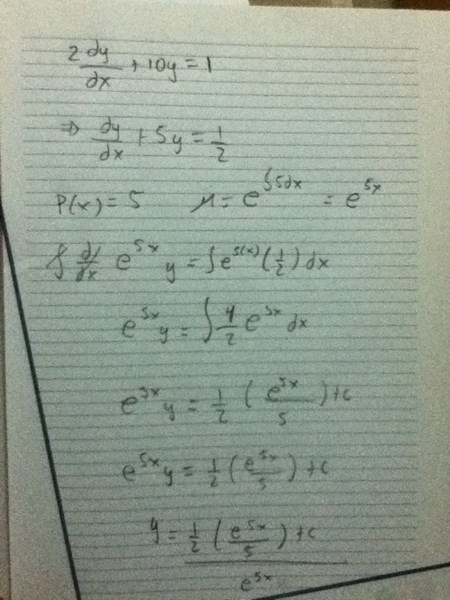 2 dy/dx + 10y = 1
⇒ dy/dx + 5y = 1/2
P(x) = 5 μ = e^∫5dx = e^5x
∫ d/dx e^5x y = ∫ e^5(x) (1/2) dx
e^5x y = ∫ 1/2 e^5x dx
e^5x y = 1/2 (e^5x/5) + c
e^5x y = 1/2 (e^5x/5) + c
y = (1/2 (e^5x/5) + c)/e^5x